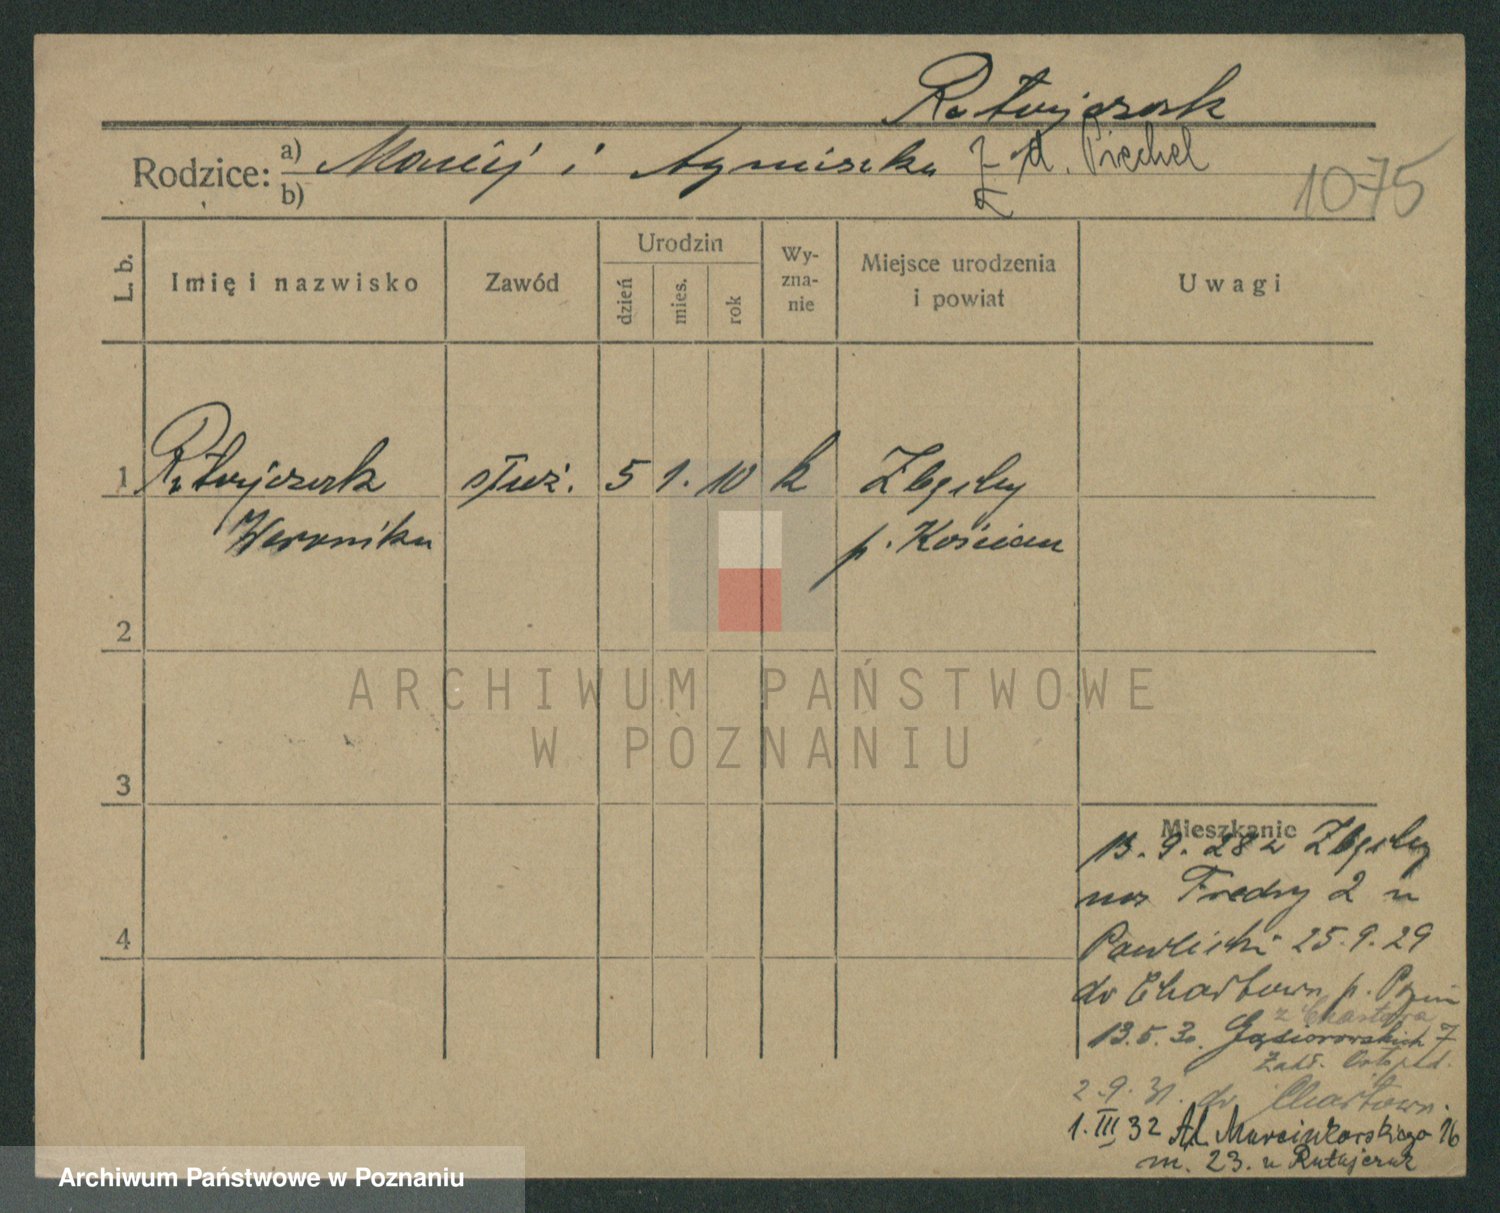 Ratajczak
Rodzice: a) Maciej i Agnieszka z d. Piechel
b)
1075
L. b. Imię i nazwisko Zawód Urodzin dzień mies. rok Wyznanie Miejsce urodzenia i powiat Uwagi
1 Ratajczak służ. 5 1. 10 k Zbęchy
Weronika p. Kościan
2
ARCHIWUM PAŃSTWOWE
W POZNANIU
3
Mieszkanie
13. 9. 28 z Zbęchy
na Fredry 2 u
Pawlicki 25. 9. 29
do Chartowo p. Pozn
4
z Chartowa
13. 5. 30 Gąsiorowskich 7
Zakł. Ortoped.
2. 9. 31. do Chartowo.
1. III 32 Al. Marcinkowskiego 16
m. 23. u
Archiwum Państwowe w Poznaniu